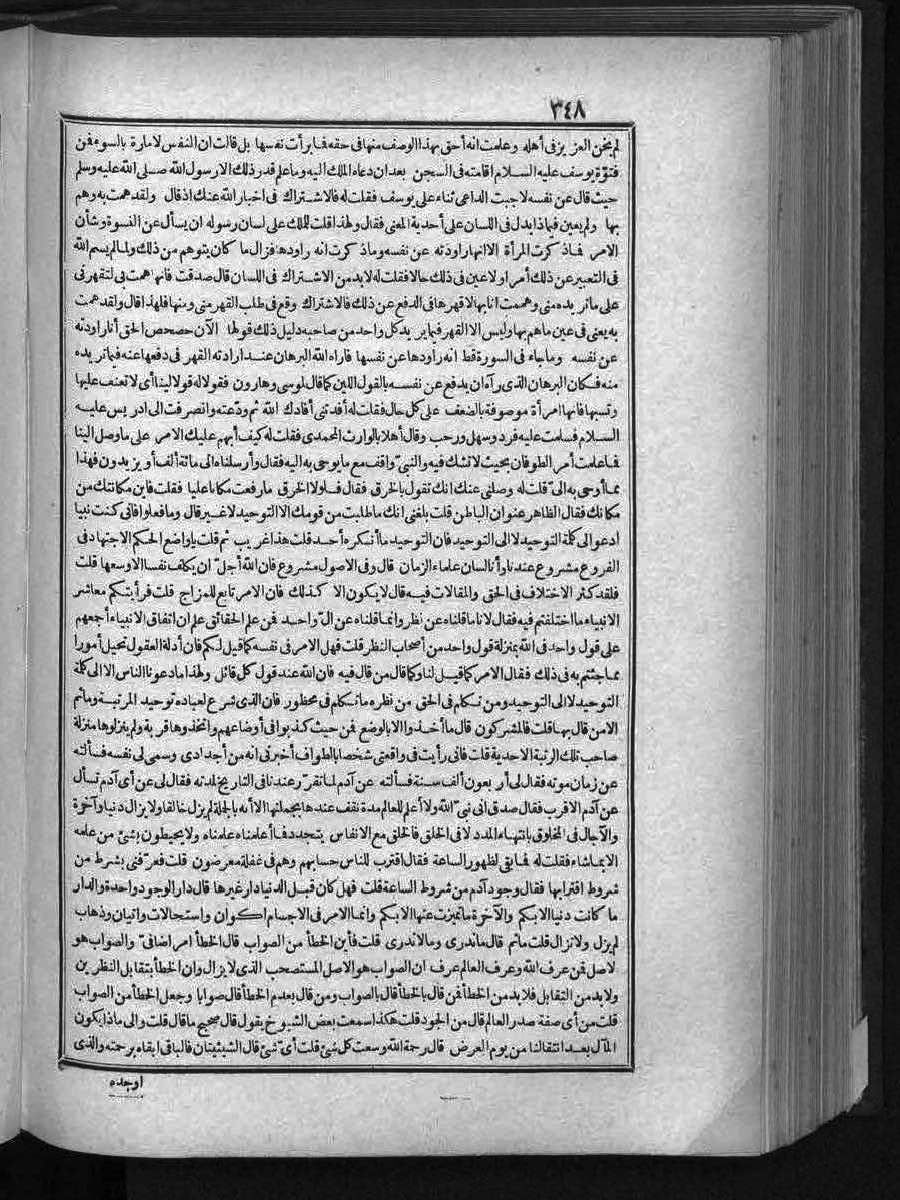 ٣٤٨
لم يخن العزيز فى أهله وعلمت انه أحق بهذا الوصف منها فى حقه فما برأت نفسها بل قالت ان النفس لامارة بالسوء فمن
فتوّة يوسف عليه السلام اقامته فى السجن بعد ان دعاه الملك اليه وما علم قدر ذلك الارسول الله صلى الله عليه وسلم
حيث قال عن نفسه لاجبت الداعى ثناء على يوسف فقلت له فالاشتراك فى اخبار الله عنك اذ قال ولقد همت به وهم
بها ولم يعين فى ماذا يدل فى اللسان على أحدية المعنى فقال ولهذا قلت للملك على لسان رسوله ان يسأل عن النسوة وشأن
الامر فما ذكرت المرأة الا انها راودته عن نفسه وما ذكرت انه راودها فزال ما كان يتوهم من ذلك ولما لم يسم الله
فى التعبير عن ذلك أمرا ولا عين فى ذلك حالا فقلت له لا بد من الاشتراك فى اللسان قال صدقت فانها همت بى لتقهرنى
على ما تريده منى وهممت انا بها لاقهرها فى الدفع عن ذلك فالاشتراك وقع فى طلب القهر منى ومنها فلهذا قال ولقد همت
به يعنى فى عين ما هم بها وليس الا القهر فيما يريد كل واحد من صاحبه دليل ذلك قولها الآن حصحص الحق أنا راودته
عن نفسه وما جاء فى السورة قط انه راودها عن نفسها فاراه الله البرهان عند ارادته القهر فى دفعها عنه فيما تريده
منه فكان البرهان الذى رآه ان يدفع عن نفسه بالقول اللين كما قال لموسى وهارون فقولا له قولا لينا أى لا تعنف عليها
وتسبها فانها امرأة موصوفة بالضعف على كل حال فقلت له أفدتنى أفادك الله ثم ودّعته وانصرفت الى ادريس عليه
السلام فسلمت عليه فرد وسهل ورحب وقال أهلا بالوارث المحمدى فقلت له كيف أبهم عليك الامر على ما وصل الينا
فما علمت أمر الطوفان بحيث لا تشك فيه والنبىّ واقف مع ما يوحى به اليه فقال وأرسلناه الى مائة ألف أو يزيدون فهذا
مما أوحى به الىّ قلت له وصلنى عنك انك تقول بالخرق فقال فلولا الخرق ما رفعت مكانا عليا فقلت فاين مكانتك من
مكانك فقال الظاهر عنوان الباطن قلت بلغنى انك ما طلبت من قومك الا التوحيد لا غير قال وما فعلوا فانى كنت نبيا
ادعو الى كلمة التوحيد لا الى التوحيد فان التوحيد ما أنكره أحد قلت هذا غريب ثم قلت يا واضع الحكم الاجتهاد فى
الفروع مشروع عندنا وأنا لسان علماء الزمان قال وفى الاصول مشروع فان الله أجلّ ان يكلف نفسا الا وسعها قلت
فلقد كثر الاختلاف فى الحق والمقالات فيه قال لا يكون الا كذلك فان الامر تابع للمزاج قلت فرأيتكم معاشر
الانبياء ما اختلفتم فيه فقال لانا ما قلناه عن نظر وانما قلناه عن الّ واحد فمن علم الحقائق علم ان اتفاق الانبياء أجمعهم
على قول واحد فى الله بمنزلة قول واحد من أصحاب النظر قلت فهل الامر فى نفسه كما قيل لكم فان أدلة العقول تحيل أمورا
مما جئتم به فى ذلك فقال الامر كما قيل لنا وكما قال من قال فيه فان الله عند قول كل قائل ولهذا ما دعونا الناس الا الى كلمة
التوحيد لا الى التوحيد ومن تكلم فى الحق من نظره ما تكلم فى محظور فان الذى شرع لعباده توحيد المرتبة وما ثم
الا من قال بها قلت فالمشركون قال ما أخذوا الا بالوضع فمن حيث كذبوا فى أوضاعهم واتخذوها قربة ولم ينزلوها منزلة
صاحب تلك الرتبة الاحدية قلت فانى رأيت فى واقعتى شخصا بالطواف أخبرنى انه من أجدادى وسمى لى نفسه فسألته
عن زمان موته فقال لى أربعون ألف سنة فسألته عن آدم لما تقرّر عندنا فى التاريخ لمدته فقال لى عن أى آدم تسأل
عن آدم الاقرب فقال صدق انى نبىّ الله ولا أعلم للعالم مدة نقف عندها بجملتها الا أنه بالجملة لم يزل خالقا ولا يزال دنيا وآخرة
والآجال فى المخلوق بانتهاء المدد لا فى الخلق فالخلق مع الانفاس يتجدد فما أعلمناه علمناه ولا يحيطون بشئ من علمه
الا بما شاء فقلت له فما بقى لظهور الساعة فقال اقترب للناس حسابهم وهم فى غفلة معرضون قلت فعرّفنى بشرط من
شروط اقترابها فقال وجود آدم من شروط الساعة قلت فهل كان قبل الدنيا دار غيرها قال دار الوجود واحدة والدار
ما كانت دنيا الا بكم والآخرة ما تميزت عنها الا بكم وانما الامر فى الاجسام اكوان واستحالات واتيان وذهاب
لم يزل ولا تزال قلت ما ثم قال ما ندرى وما لا ندرى قلت فأين الخطأ من الصواب قال الخطأ امر اضافىّ والصواب هو
لاصل فمن عرف الله وعرف العالم عرف ان الصواب هو الاصل المستصحب الذى لا يزال وان الخطأ بتقابل النظرين
ولا بد من التقابل فلا بد من الخطأ فمن قال بالخطأ قال بالصواب ومن قال بعدم الخطأ قال صوابا وجعل الخطأ من الصواب
قلت من أى صفة صدر العالم قال من الجود قلت هكذا سمعت بعض الشيوخ يقول قال صحيح ما قال قلت والى ماذا يكون
المآل بعد انتقالنا من يوم العرض قال رحمة الله وسعت كل شئ قلت أىّ شئ قال الشيئيتان فالباقى ابقاه برحمته والذى
اوجده